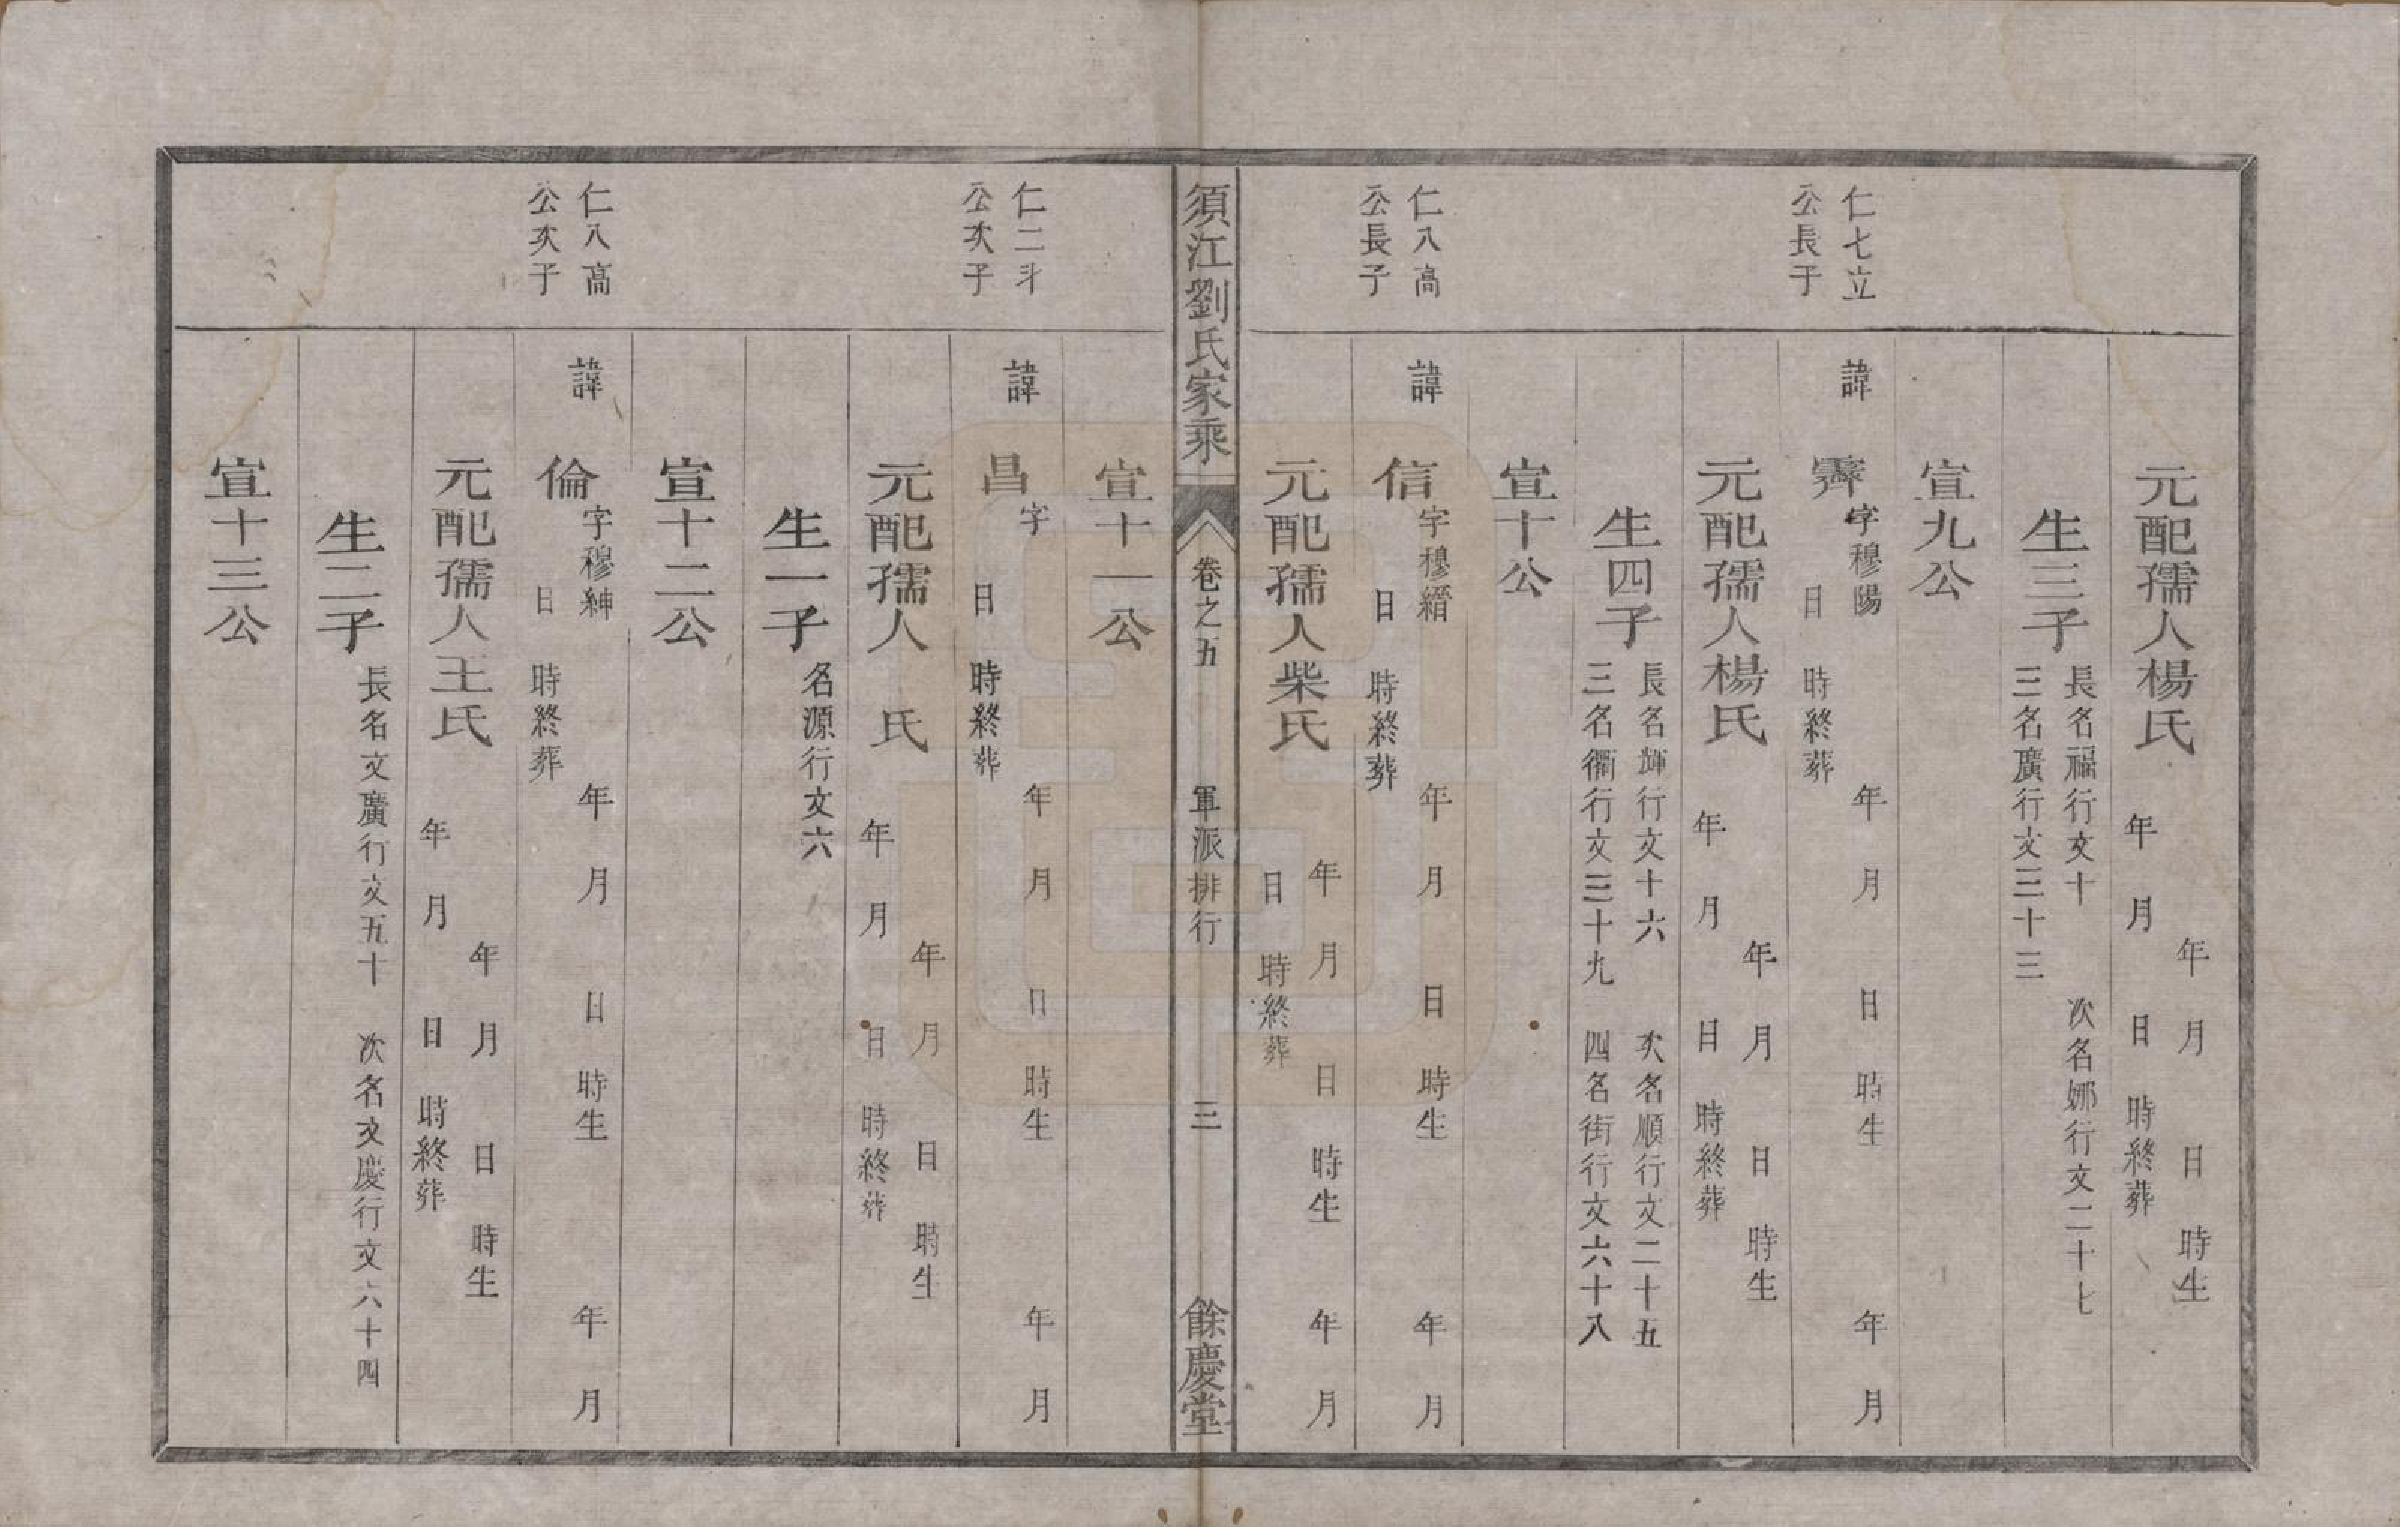 元配孺人楊氏 年 月 日 時生
年 月 日 時終葬
生三子 長名福行文十 次名娜行文二十七
三名廣行文三十三
宣九公
仁七立
公長子
諱 霽 字穆陽 年 月 日 時生 年 月
日 時終葬
元配孺人楊氏 年 月 日 時生
年 月 日 時終葬
生四子 長名輝行文十六 次名順行文二十五
三名衢行文三十九 四名街行文六十八
宣十公
仁八高
公長子
諱 信 字穆縉 年 月 日 時生 年 月
日 時終葬
元配孺人柴氏 年 月 日 時生 年 月
日 時終葬
須江劉氏家乘 卷之五 軍派排行 三 餘慶堂
宣十一公
仁二斗
公次子
諱 昌 字 年 月 日 時生 年 月
日 時終葬
元配孺人 氏 年 月 日 時生
年 月 日 時終葬
生一子 名源行文六
宣十二公
仁八高
公次子
諱 倫 字穆紳 年 月 日 時生 年 月
日 時終葬
元配孺人王氏 年 月 日 時生
年 月 日 時終葬
生二子 長名文廣行文五十 次名文慶行文六十四
宣十三公